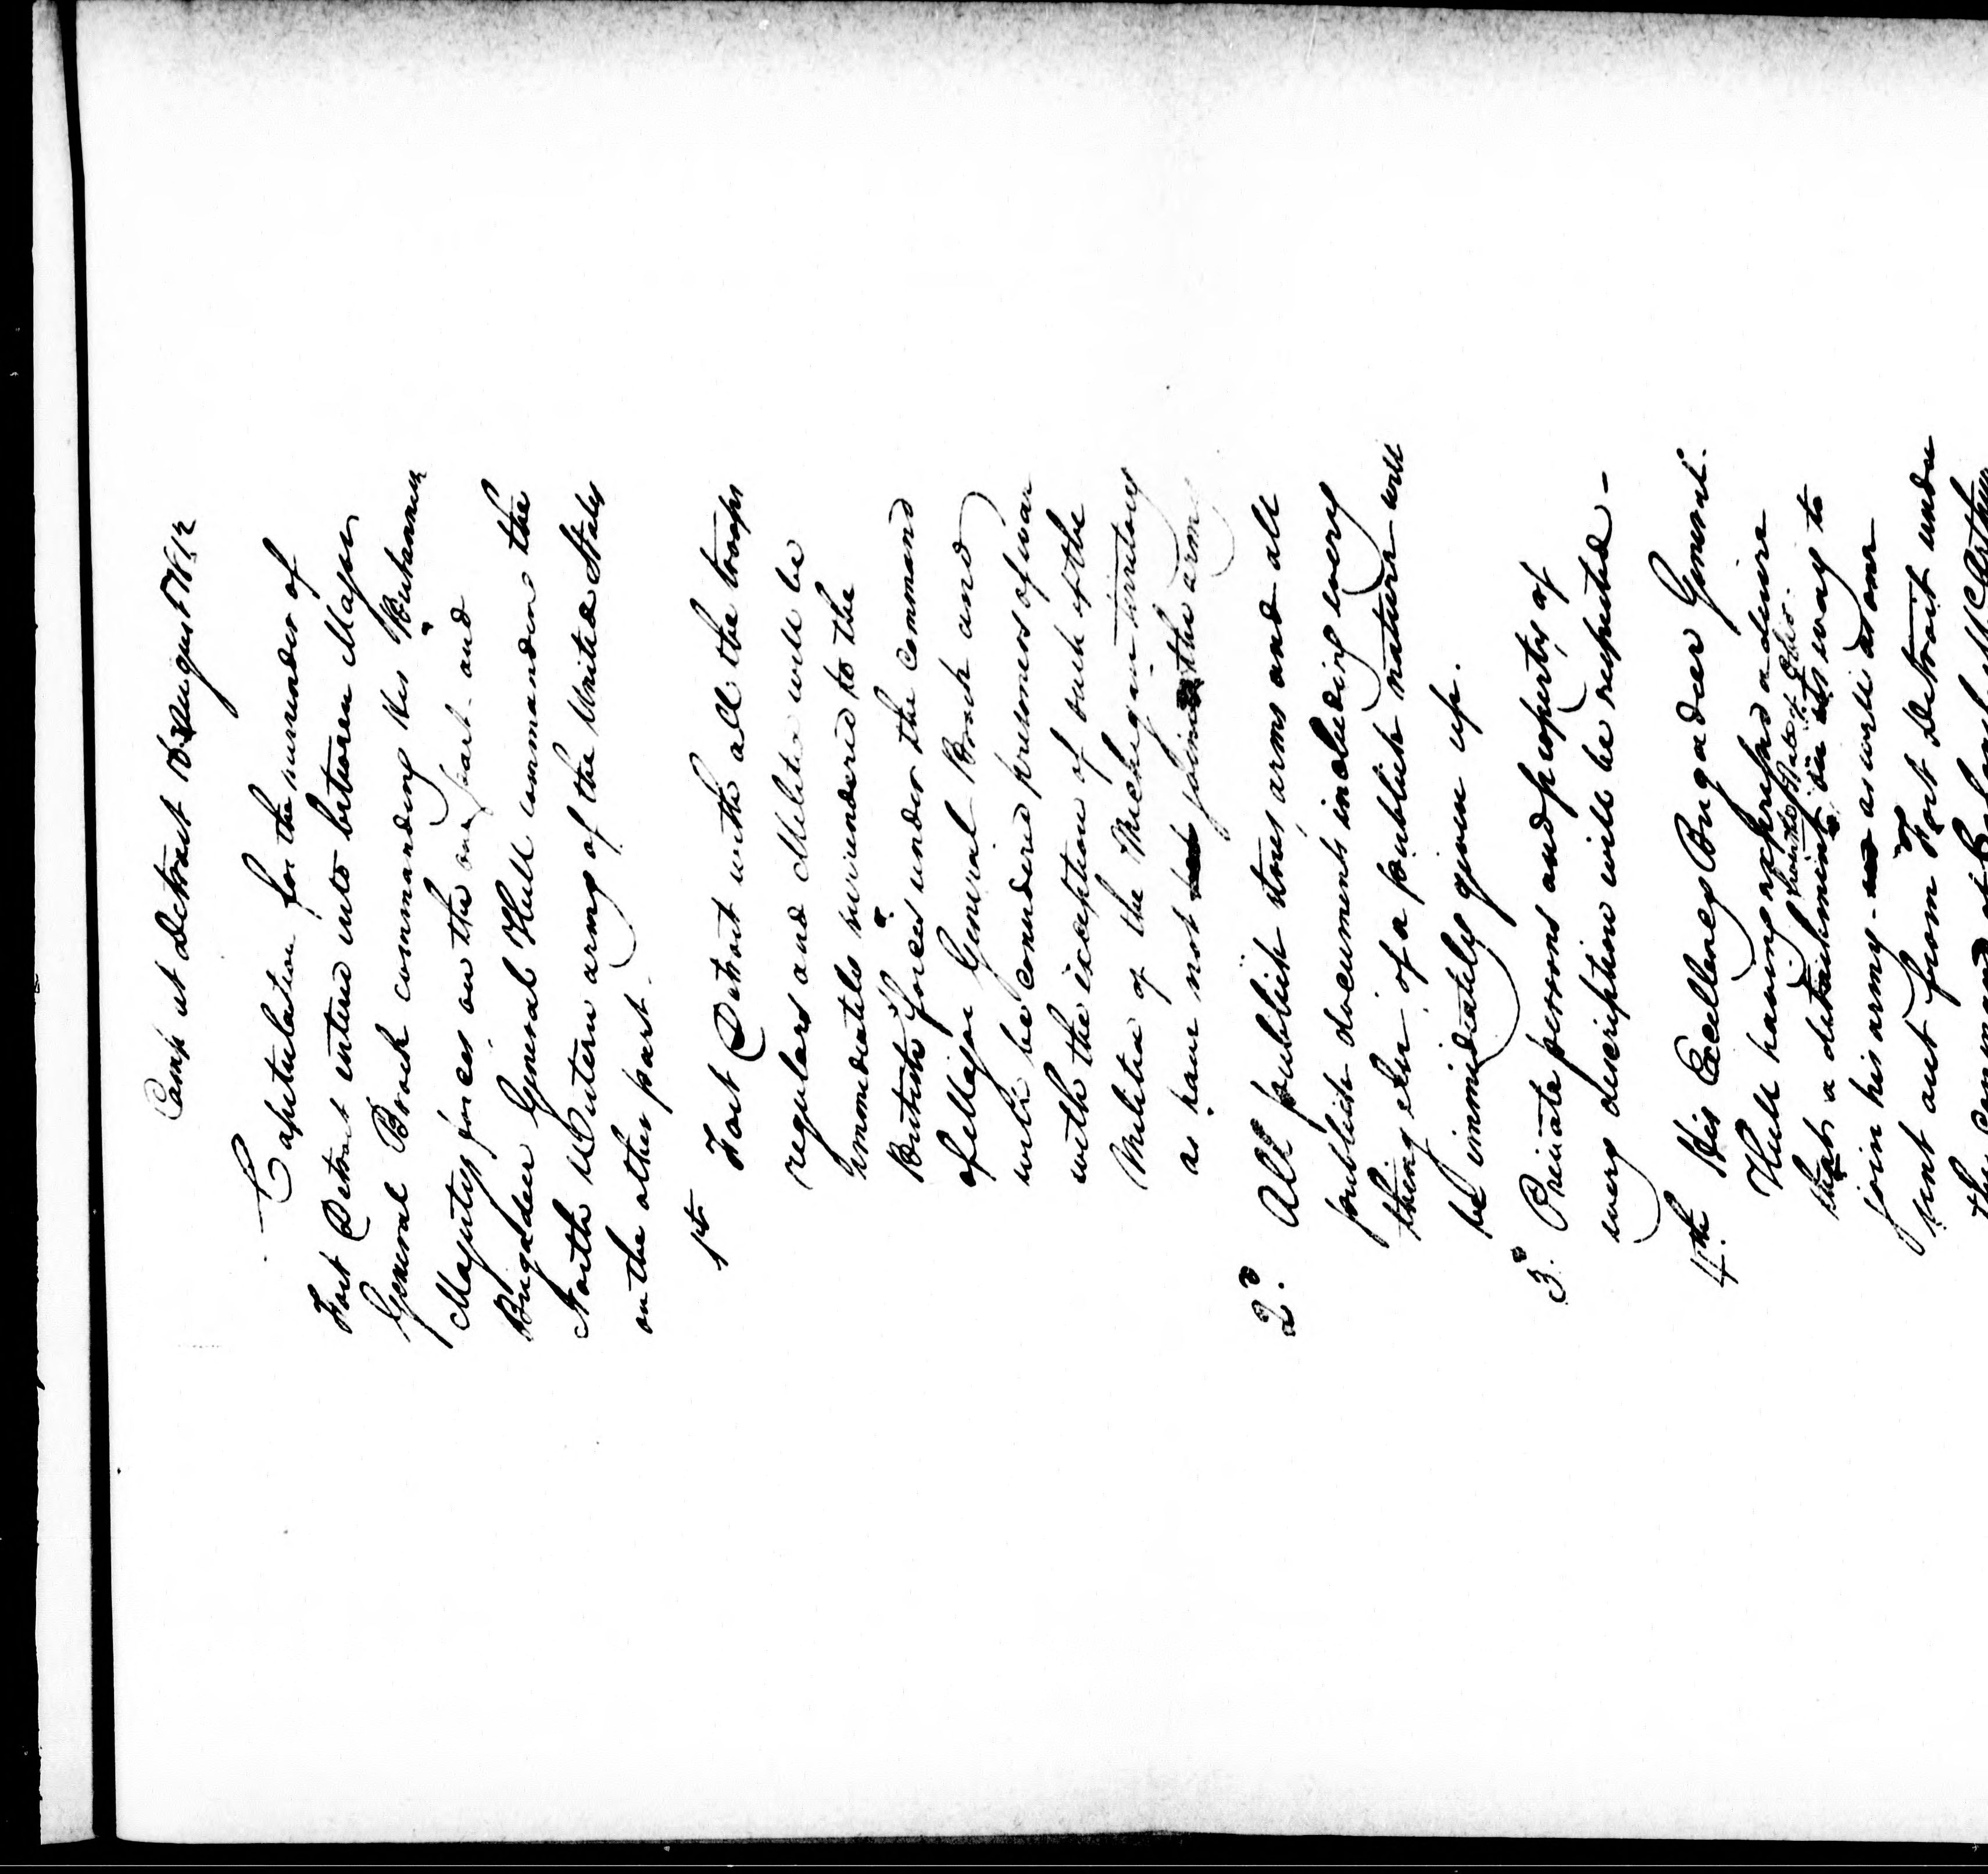 Camp at Detroit 16 August 1812
Capitulation for the surrender of
Fort Detroit entered into between Major
General Brock commanding His Britannick
Majestys forces on the one part and
Brigadier General Hull commanding the
North Western army of the United States
on the other part.
1st Fort Detroit with all the troops
regulars and Militia will be
immediately surrendered to the
British forces under the command
of Major General Brock and
will be considered prisoners of war
with the exception of such of the
Militia of the Michigan territory
as have not joined the army
2d. All publick stores arms and all
publick documents including every
thing else of a publick nature will
be immediately given up.
3d. Private persons and property of
every description will be respected -
4th His Excellency Brigadier General
Hull having expressed a desire
from the State of Ohio.
that a detachment on its way to
join his army as well as one
sent out from Fort Detroit under
the Command of Colonel McArthur